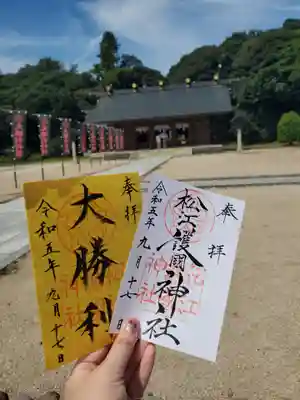 奉拝
大勝利
令和五年九月十七日
奉拝
松江護國神社
令和五年九月十七